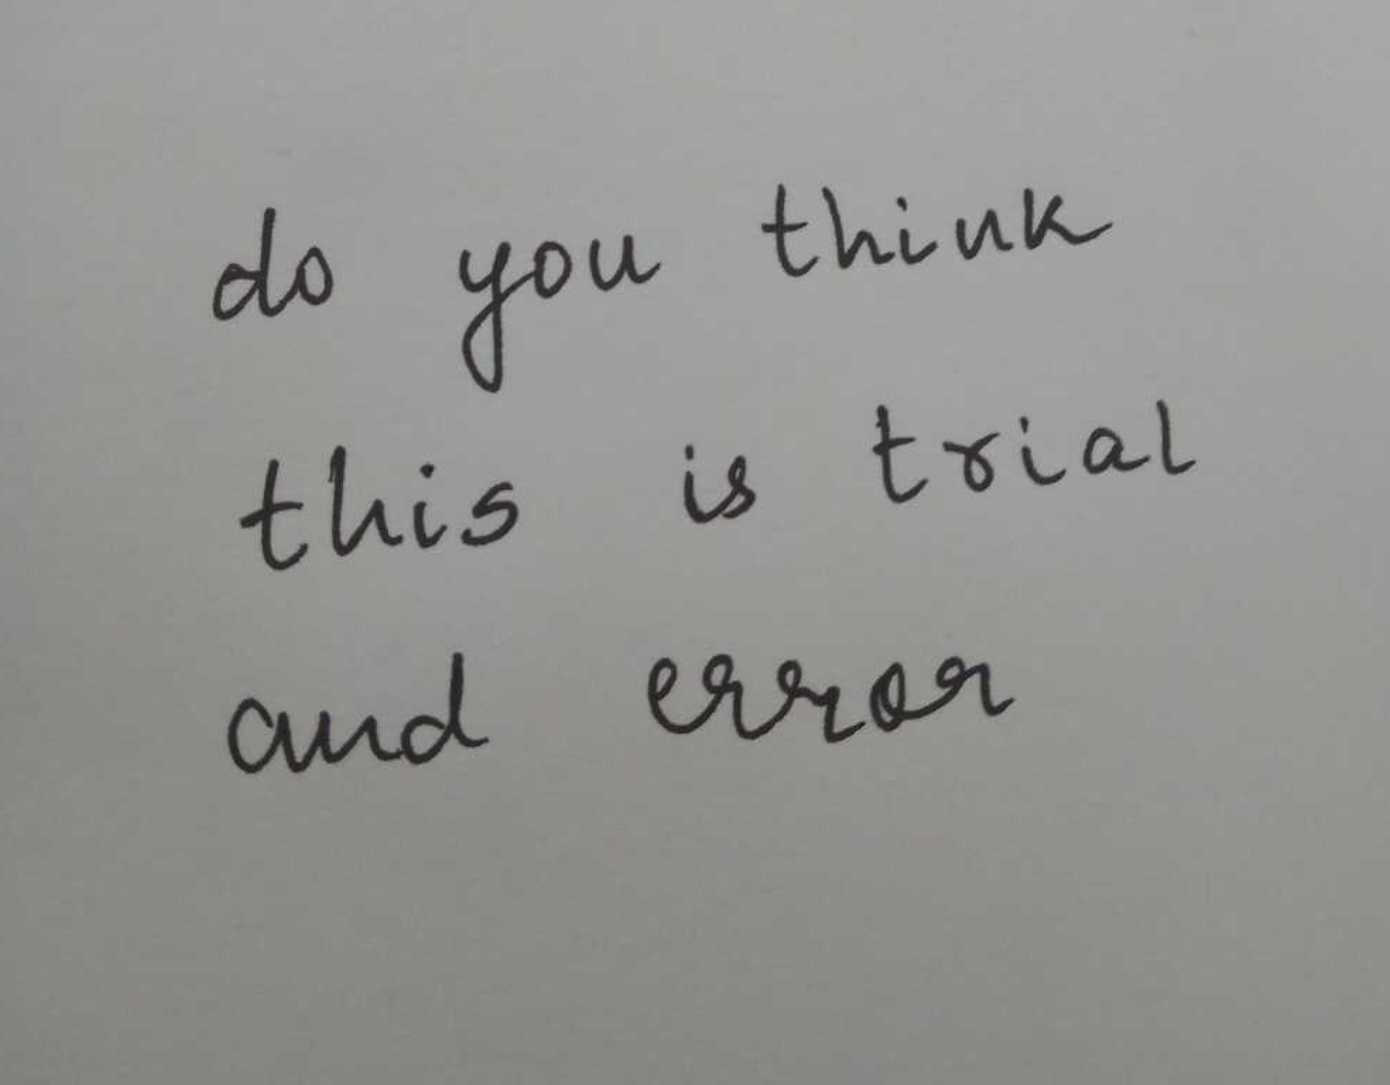 do you think
this is trial
and error